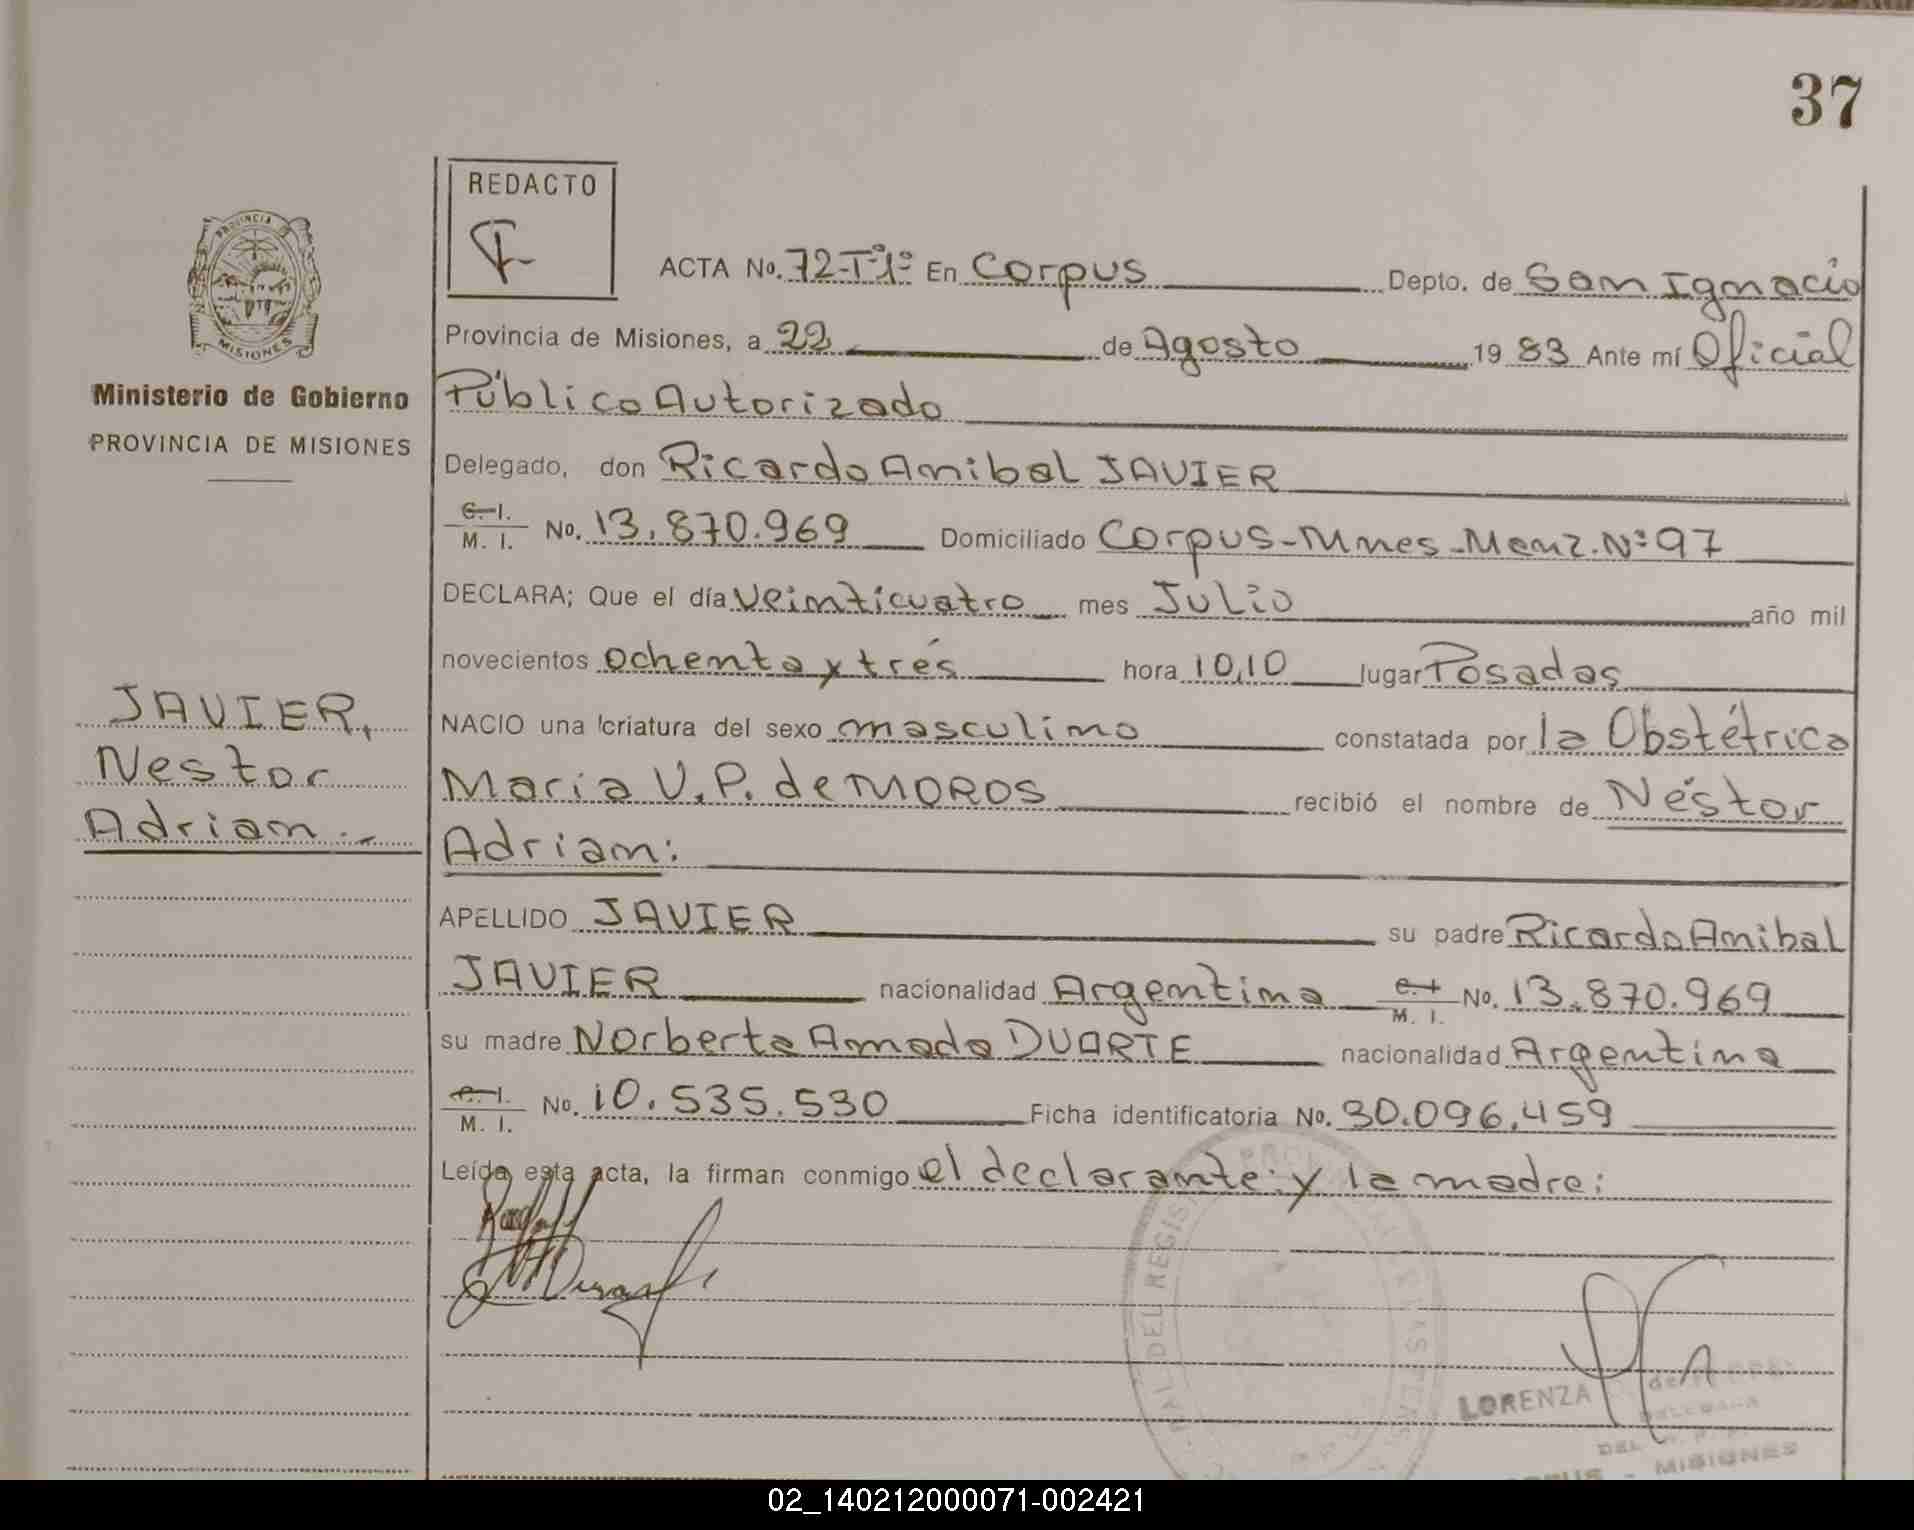 37
REDACTO
PROVINCIA
MISIONES
Ministerio de Gobierno
PROVINCIA DE MISIONES
JAVIER,
Nestor
Adrian.-
ACTA No. 72-Tº1º En Corpus Depto. de San Ignacio
Provincia de Misiones, a 22 de Agosto 1983 Ante mí Oficial
Público Autorizado
Delegado, don Ricardo Anibal JAVIER
C. I.
M. I. No. 13.870.969 Domiciliado Corpus-Mnes-Manz.Nº97
DECLARA; Que el día veinticuatro mes Julio año mil
novecientos ochenta y trés hora 10,10 lugar Posadas
NACIO una criatura del sexo masculino constatada por la Obstétrica
María V.P. de MOROS recibió el nombre de Néstor
Adrian:
APELLIDO JAVIER su padre Ricardo Anibal
JAVIER nacionalidad Argentina C. I.
M. I. No. 13.870.969
su madre Norberta Amada DUARTE nacionalidad Argentina
C. I.
M. I. No. 10.535.530 Ficha identificatoria No. 30.096.459
Leída esta acta, la firman conmigo el declarante y la madre:
LORENZA
MISIONES
02_140212000071-002421